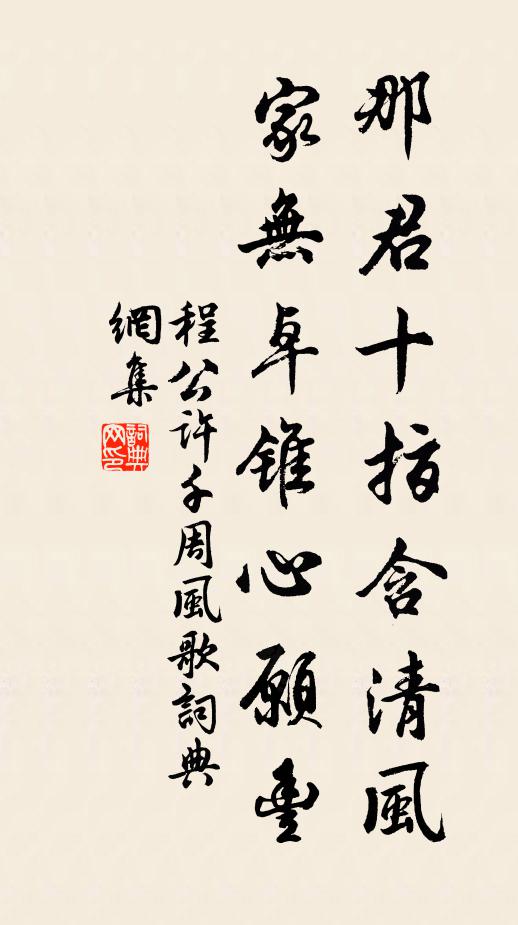 那君十指含清風
家無卓錐心願豐
程公許千周風歌詞典
網集
詞典網印